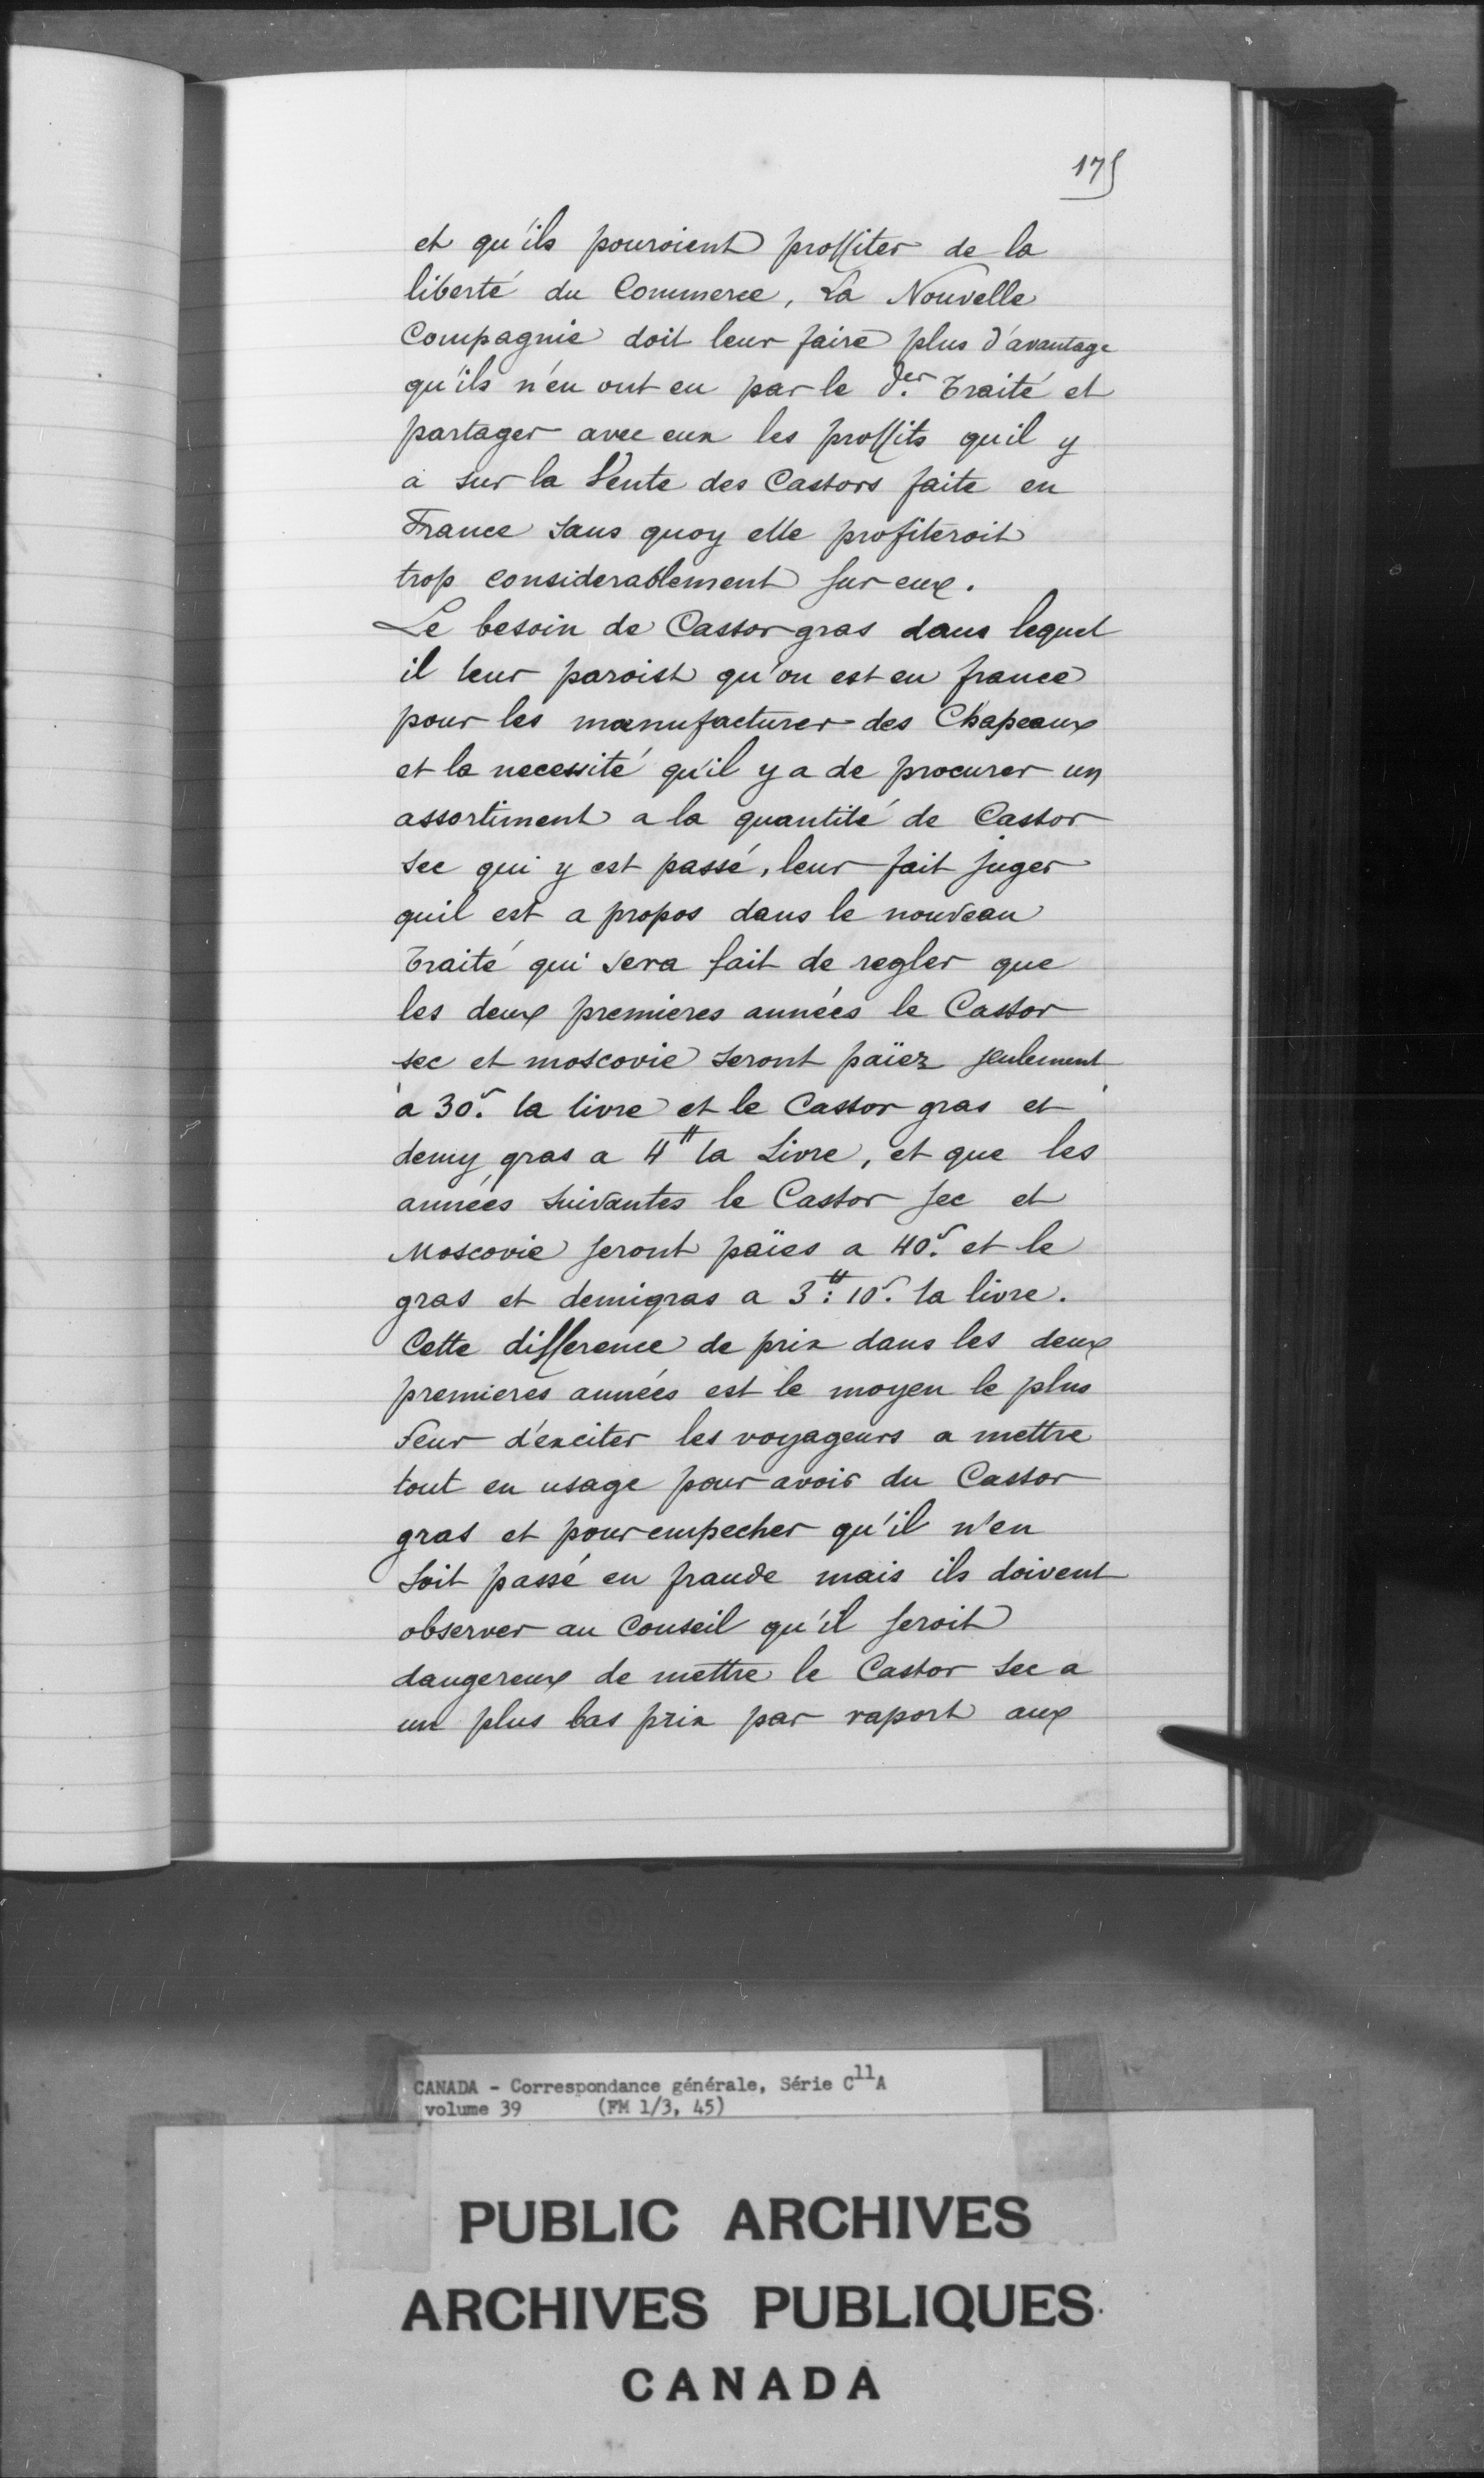 175
et qu'ils pouroient proffiter de la
liberté du Commerce, La Nouvelle
Compagnie doit leur faire plus d'avantage
qu'ils n'en ont eu par le der. Traité et
partager avec eux les proffits quil y
a sur la Vente des Castors faite en
France sans quoy elle profiteroit
trop considerablement sur eux.
Le besoin de Castor gras dans lequel
il leur paroist qu'on est en france
pour les manufacturer des Chapeaux
et la necessité qu'il y a de procurer un
assortiment a la quantité de Castor
sec qui y est passé, leur fait juger
quil est a propos dans le nouveau
Traité qui sera fait de regler que
les deux premieres années le Castor
sec et moscovie seront païez seulement
a 30s. la livre et le Castor gras et
demy gras a 4tt la Livre, et que les
années suivantes le Castor sec et
Moscovie seront païes a 40s. et le
gras et demigras a 3tt: 10s. la livre.
Cette difference de prix dans les deux
premieres années est le moyen le plus
seur d'exciter les voyageurs a mettre
tout en usage pour avoir du Castor
gras et pour empecher qu'il n'en
soit passé en fraude mais ils doivent
observer au Conseil qu'il seroit
dangereux de mettre le Castor sec a
un plus bas prix par raport aux
CANADA - Correspondance générale, Série C11A
volume 39 (FM 1/3, 45)
PUBLIC ARCHIVES
ARCHIVES PUBLIQUES
CANADA